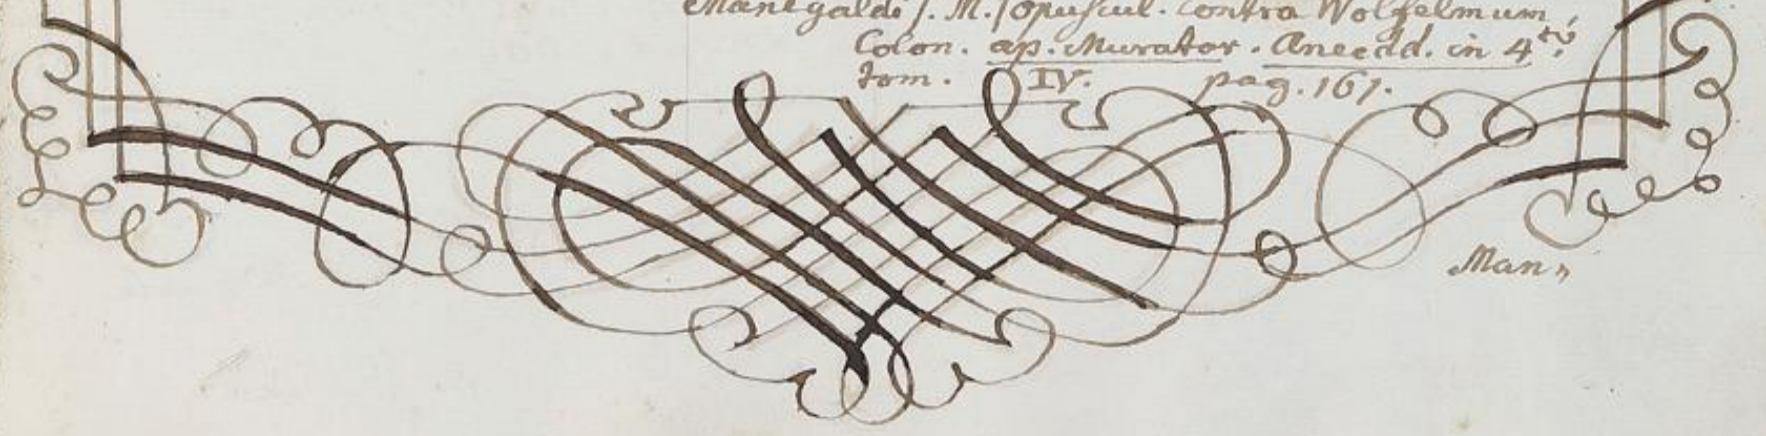 Manegaldi s. M. Opuscul. contra Wolfelmum,
Colon. ap. Murator. Anecdd. in 4to.
tom. IV. pag. 161.
Man„